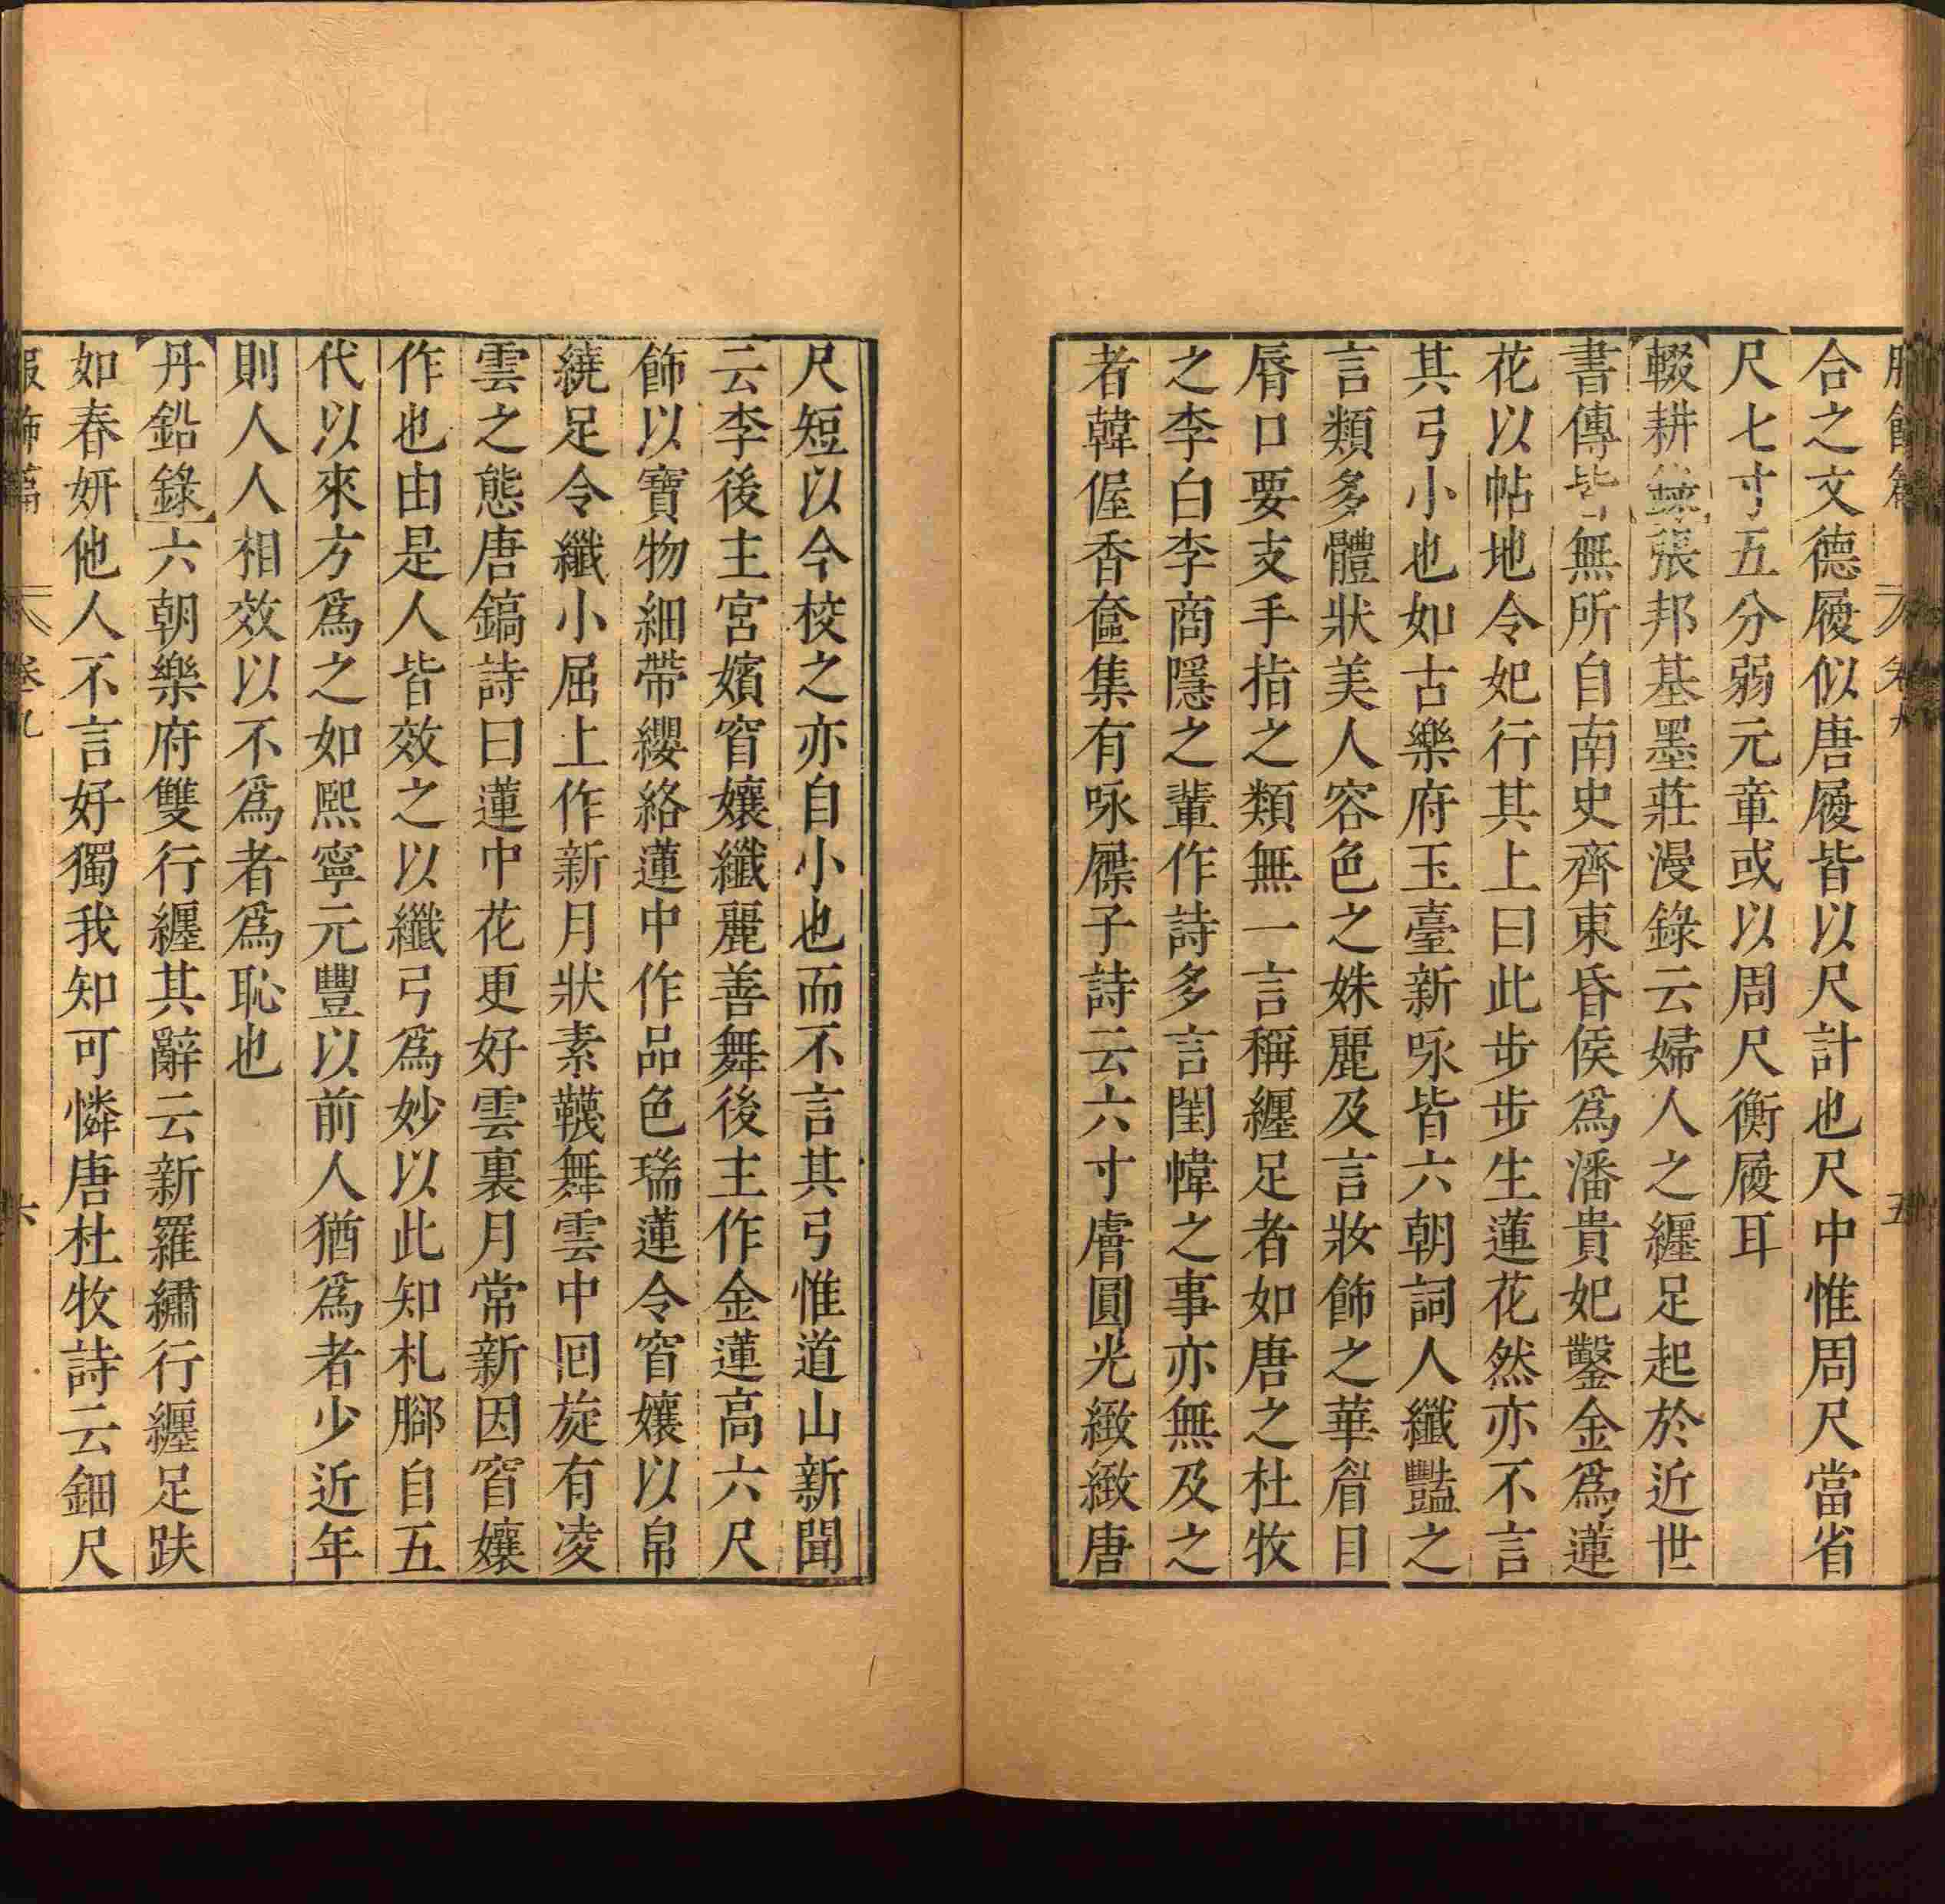 合之文德履似唐履皆以尺計也尺中惟周尺當省
尺七寸五分弱元章或以周尺衡履耳
輟耕錄張邦基墨莊漫錄云婦人之纏足起於近世
書傳皆無所自南史齊東昏侯為潘貴妃鑿金為蓮
花以帖地令妃行其上曰此步步生蓮花然亦不言
其弓小也如古樂府玉臺新咏皆六朝詞人纖豔之
言類多體狀美人容色之姝麗及言妝飾之華眉目
脣口要支手指之類無一言稱纏足者如唐之杜牧
之李白李商隱之輩作詩多言閨幃之事亦無及之
者韓偓香奩集有咏屧子詩云六寸膚圓光緻緻唐
尺短以今校之亦自小也而不言其弓惟道山新聞
云李後主宮嬪窅孃纖麗善舞後主作金蓮高六尺
飾以寶物細帶纓絡蓮中作品色瑞蓮令窅孃以帛
繞足令纖小屈上作新月狀素韈舞雲中回旋有凌
雲之態唐鎬詩曰蓮中花更好雲裏月常新因窅孃
作也由是人皆效之以纖弓為妙以此知札腳自五
代以來方為之如熙寧元豐以前人猶為者少近年
則人人相效以不為者為恥也
丹鉛錄六朝樂府雙行纏其辭云新羅繡行纏足趺
如春妍他人不言好獨我知可憐唐杜牧詩云鈿尺
服飾篇 卷九 六